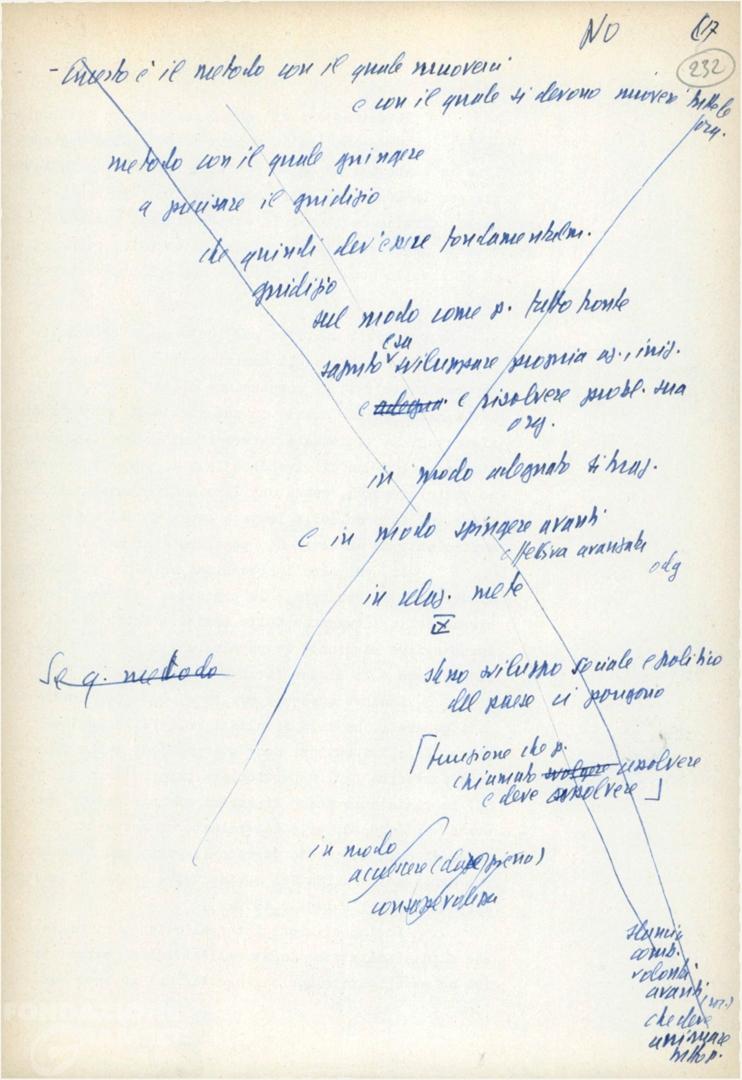 NO 17
232
- Questo è il metodo con il quale muoverci
e con il quale si devono muovere tutte le
org.
metodo con il quale giungere
a precisare il giudizio
che quindi dev'essere fondamentalm.
giudizio
sul modo come p. tutto fronte
esa
saputo sviluppare propria az., iniz.
e adegua. e risolvere probl. sua
org.
in modo adeguato situaz.
e in modo spingere avanti
effettiva avanzata
odg
in relaz. mete
IX
Se q. metodo
steno sviluppo sociale e politico
del paese ci pongono
[funzione che p.
chiamato svolgere assolvere
e deve assolvere]
in modo
accrescere (dare piena)
consapevolezza
slancio
comb.
volontà
avanti
che deve
animare
tutto p.
FONDAZIONE